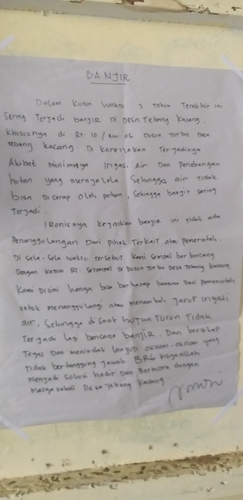 BANJIR
Dalam Kurun waktu 5 tahun Terakhir ini
Sering Terjadi banjir di Desa Tebang Kacang.
Khususnya di Rt 10 / Dusun Desa
Tebang Kacang. Di karenakan Terjadinya
Akibat Minimnya Irigasi Air Dan Penebangan
hutan yang merajalela Sehingga air Tidak
bisa Di serap oleh pohon, Sehingga banjir sering
Terjadi.
Ironisnya kejadian banjir ini tidak ada
Penanggulangan Dari pihak Terkait atau pemerintah
Di Sela-Sela waktu tersebut Kami Sempat berbincang
Dengan Ketua RT. Setempat Di Dusun Desa Tebang Kacang
Kami Disini hanya bisa berharap bantuan Dari pemerintah
untuk menanggulangi atau menambah Jalur Irigasi
air, Sehingga di saat hujan turun Tidak
Terjadi lagi bencana banjir. Dan bersikap
Tegas Dan menindak lanjuti oknum-oknum yang
Tidak bertanggung jawab
Menjadi Solusi hadir Dan Bersama dengan
Masyarakat Desa Tebang Kacang.